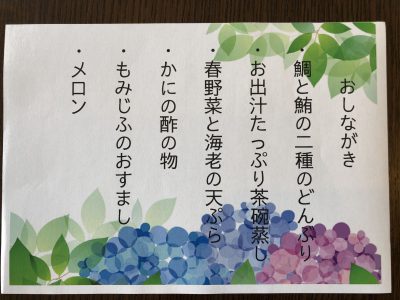 おしながき
・鯛と鮪の二種のどんぶり
・お出汁たっぷり茶碗蒸し
・春野菜と海老の天ぷら
・かにの酢の物
・もみじふのおすまし
・メロン